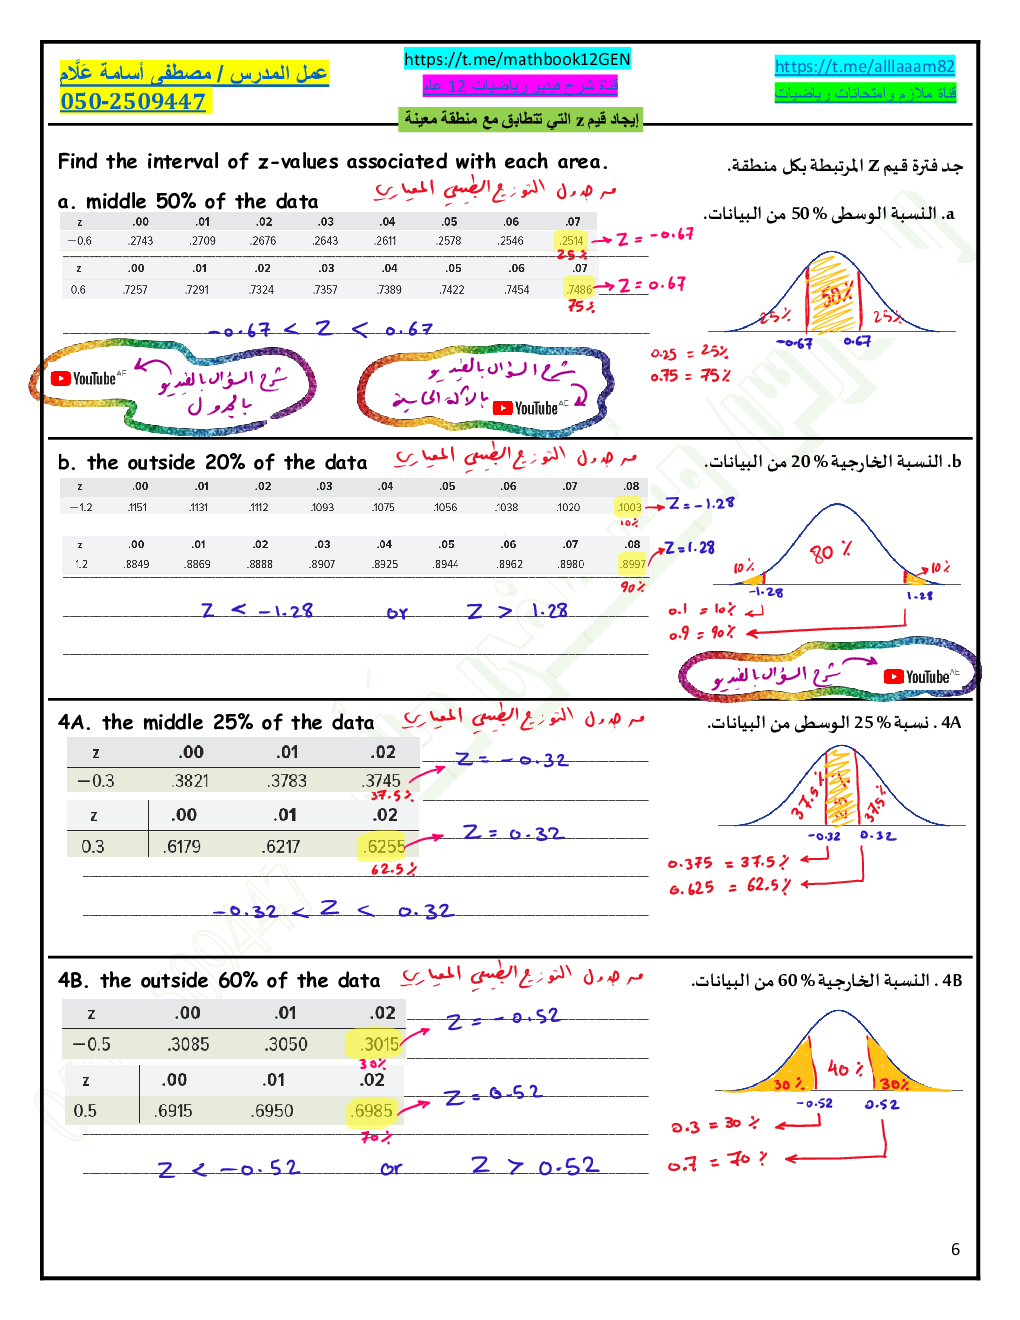 عمل المدرس / مصطفى أسامة علَّام
050-2509447
https://t.me/mathbook12GEN
قناة شرح فيديو رياضيات 12 عام
https://t.me/alllaaam82
قناة ملازم وامتحانات رياضيات
إيجاد قيم z التي تتطابق مع منطقة معينة
Find the interval of z-values associated with each area.
جد فترة قيم Z المرتبطة بكل منطقة.
a. middle 50% of the data
من جدول التوزيع الطبيعي المعياري
a. النسبة الوسطى % 50 من البيانات.
z .00 .01 .02 .03 .04 .05 .06 .07
−0.6 .2743 .2709 .2676 .2643 .2611 .2578 .2546 .2514 Z = -0.67
25%
z .00 .01 .02 .03 .04 .05 .06 .07
0.6 .7257 .7291 .7324 .7357 .7389 .7422 .7454 .7486 Z = 0.67
75%
25% 50% 25%
-0.67 0.67
-0.67 < Z < 0.67
0.25 = 25%
0.75 = 75%
YouTube AE شرح السؤال بالفيديو
بالجدول
شرح السؤال بالفيديو
بالآلة الحاسبة YouTube AE
b. the outside 20% of the data
من جدول التوزيع الطبيعي المعياري
b. النسبة الخارجية % 20 من البيانات.
z .00 .01 .02 .03 .04 .05 .06 .07 .08
−1.2 .1151 .1131 .1112 .1093 .1075 .1056 .1038 .1020 .1003 Z = -1.28
10%
z .00 .01 .02 .03 .04 .05 .06 .07 .08
1.2 .8849 .8869 .8888 .8907 .8925 .8944 .8962 .8980 .8997 Z = 1.28
90%
10% 80% 10%
-1.28 1.28
Z < -1.28 or Z > 1.28
0.1 = 10%
0.9 = 90%
شرح السؤال بالفيديو YouTube AE
4A. the middle 25% of the data
من جدول التوزيع الطبيعي المعياري
4A . نسبة % 25 الوسطى من البيانات.
z .00 .01 .02
−0.3 .3821 .3783 .3745 Z = -0.32
37.5%
z .00 .01 .02
0.3 .6179 .6217 .6255 Z = 0.32
62.5%
37.5% 25% 37.5%
-0.32 0.32
0.375 = 37.5%
0.625 = 62.5%
-0.32 < Z < 0.32
4B. the outside 60% of the data
من جدول التوزيع الطبيعي المعياري
4B . النسبة الخارجية % 60 من البيانات.
z .00 .01 .02
−0.5 .3085 .3050 .3015 Z = -0.52
30%
z .00 .01 .02
0.5 .6915 .6950 .6985 Z = 0.52
70%
30% 40% 30%
-0.52 0.52
0.3 = 30%
0.7 = 70%
Z < -0.52 or Z > 0.52
6